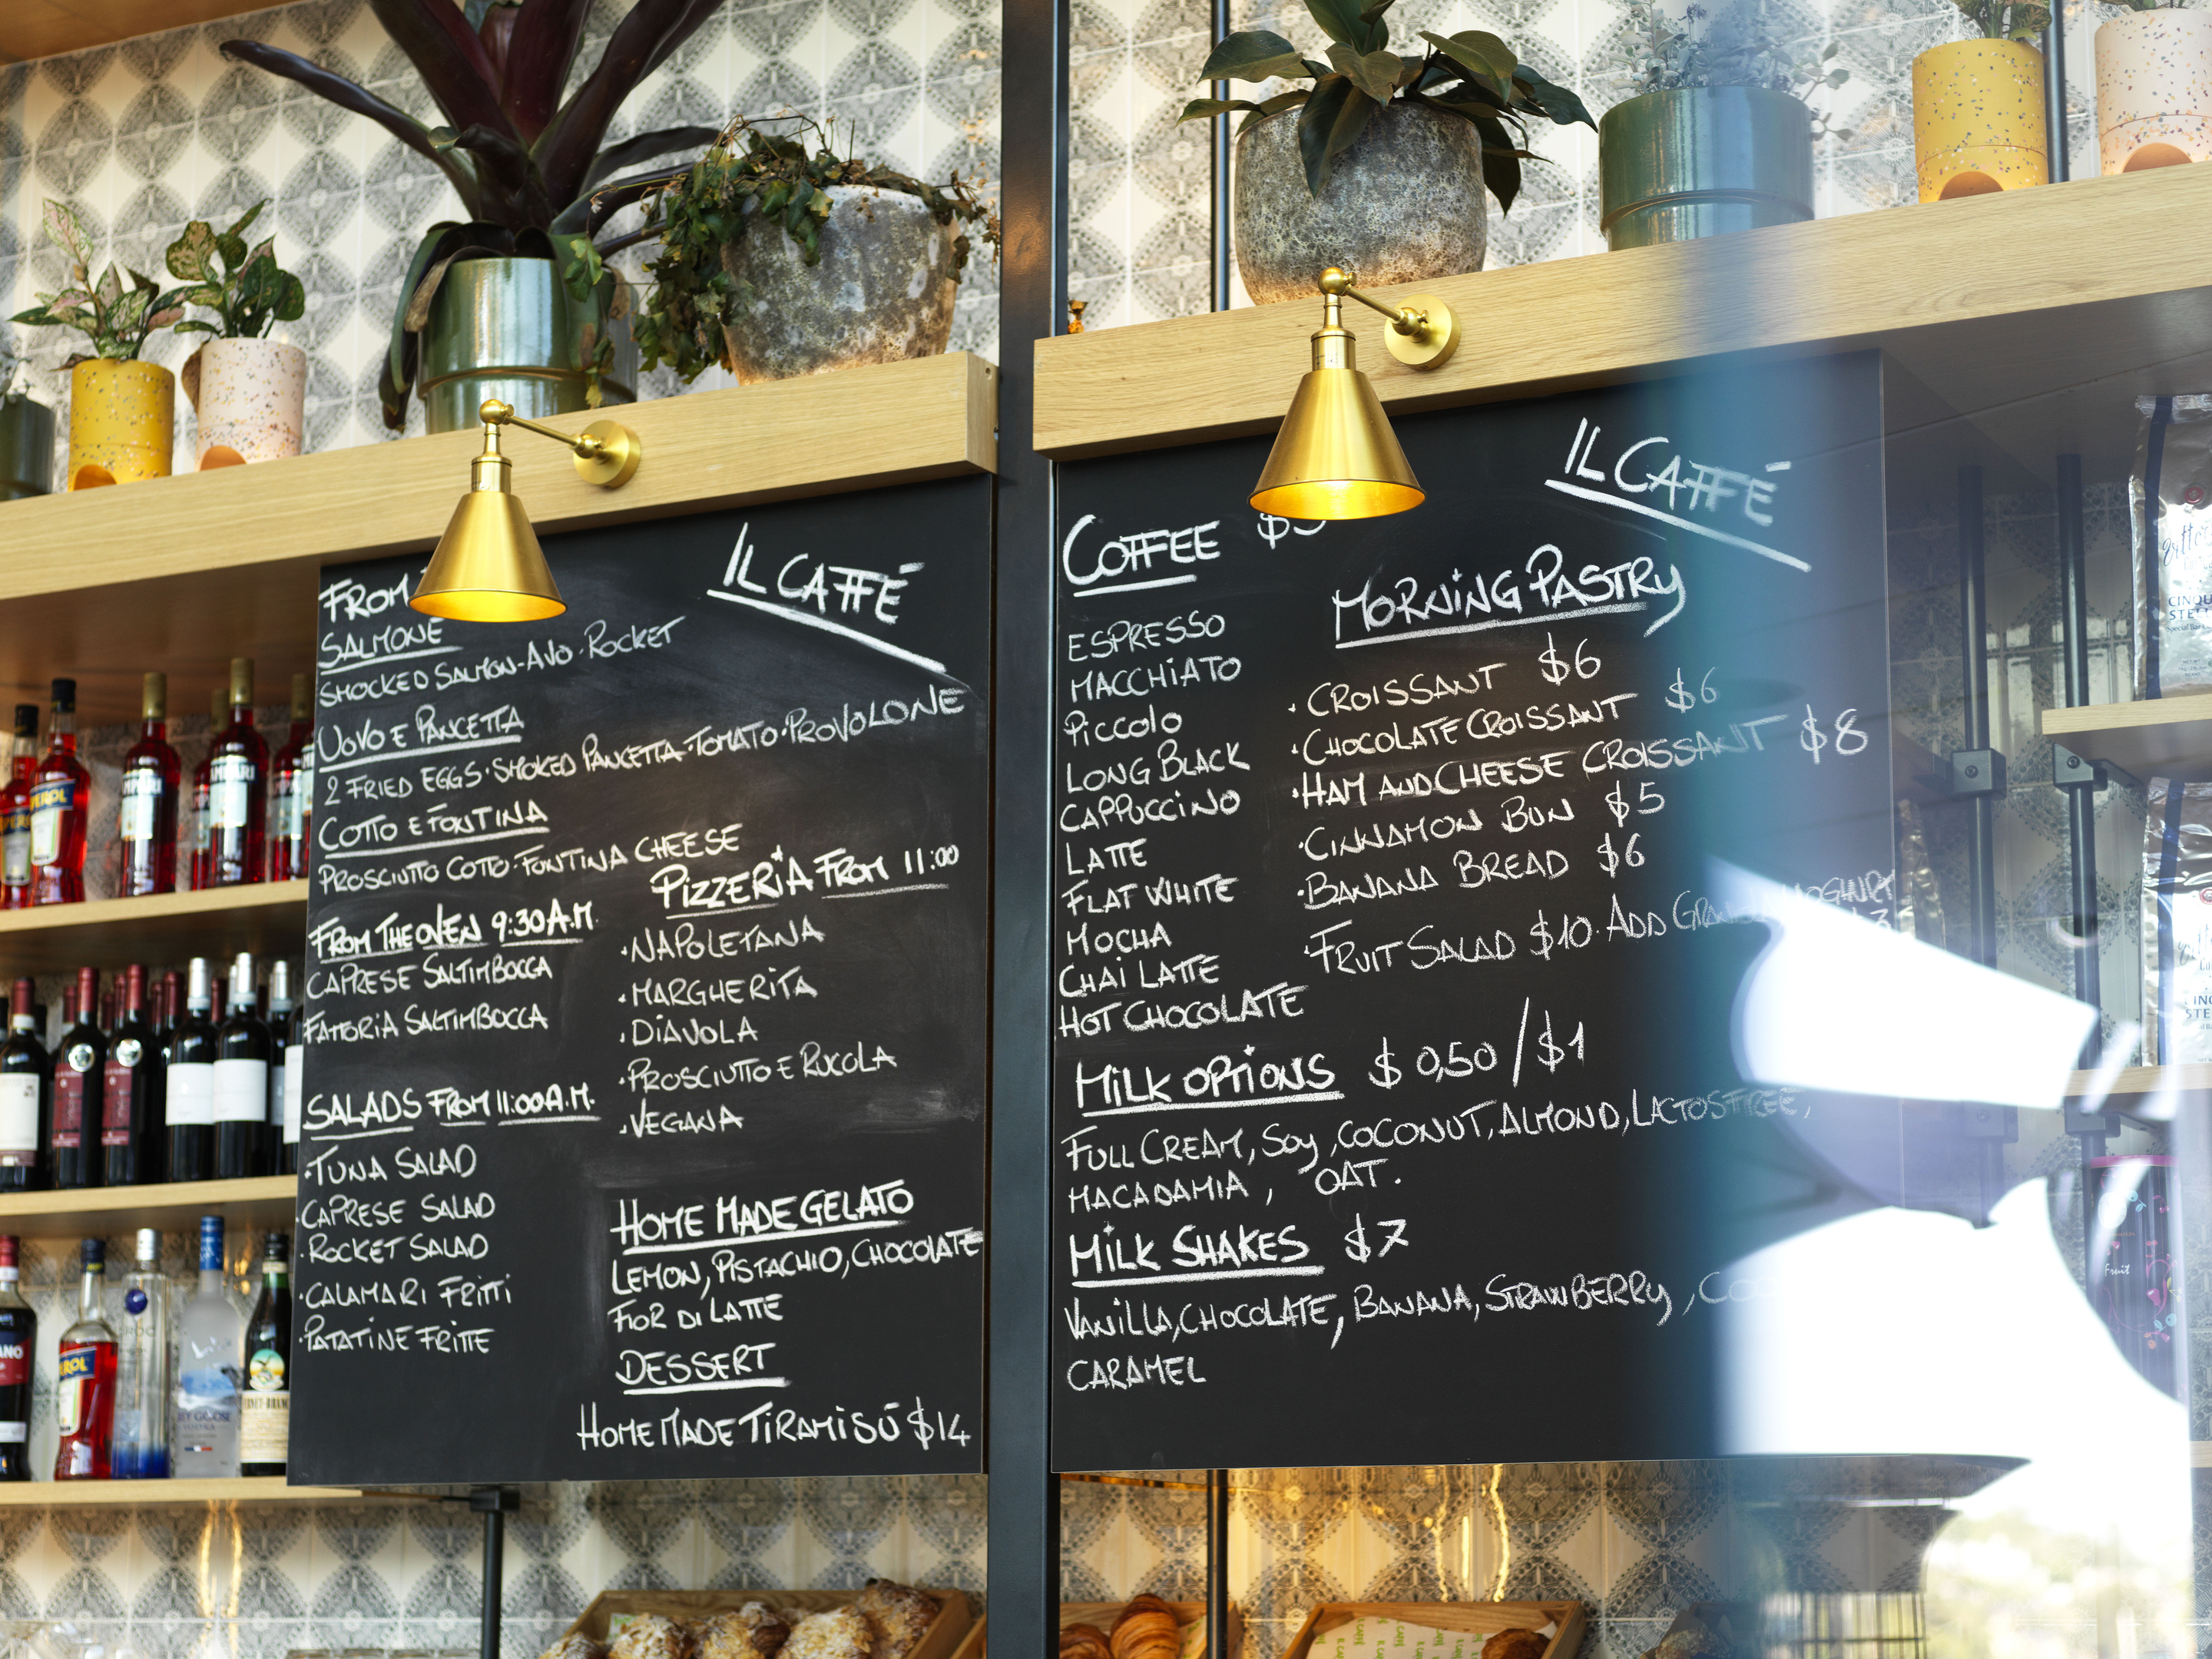 IL CAFFÉ
FROM
SALMONE
SMOCKED SALMON-AVO·ROCKET
UOVO E PANCETTA
2 FRIED EGGS·SMOKED PANCETTA·TOMATO·PROVOLONE
COTTO E FONTINA
PROSCIUTTO COTTO·FONTINA CHEESE
FROM THE OVEN 9:30 A.M.
CAPRESE SALTIMBOCCA
FATTORIA SALTIMBOCCA
SALADS FROM 11:00 A.M.
·TUNA SALAD
·CAPRESE SALAD
·ROCKET SALAD
·CALAMARI FRITTI
·PATATINE FRITTE
PIZZERIA FROM 11:00
·NAPOLETANA
·MARGHERITA
·DIAVOLA
·PROSCIUTTO E RUCOLA
·VEGANA
HOME MADE GELATO
LEMON, PISTACHIO, CHOCOLATE
FIOR DI LATTE
DESSERT
HOME MADE TIRAMISÚ $14
IL CAFFÉ
COFFEE
ESPRESSO
MACCHIATO
PICCOLO
LONG BLACK
CAPPUCCINO
LATTE
FLAT WHITE
MOCHA
CHAI LATTE
HOT CHOCOLATE
MORNING PASTRY
·CROISSANT $6
·CHOCOLATE CROISSANT $6
·HAM AND CHEESE CROISSANT $8
·CINNAMON BUN $5
·BANANA BREAD $6
·FRUIT SALAD $10·ADD YOGHURT
MILK OPTIONS $0,50/$1
FULL CREAM, SOY, COCONUT, ALMOND, LACTOSFREE,
MACADAMIA, OAT.
MILK SHAKES $7
VANILLA, CHOCOLATE, BANANA, STRAWBERRY,
CARAMEL
Fruit